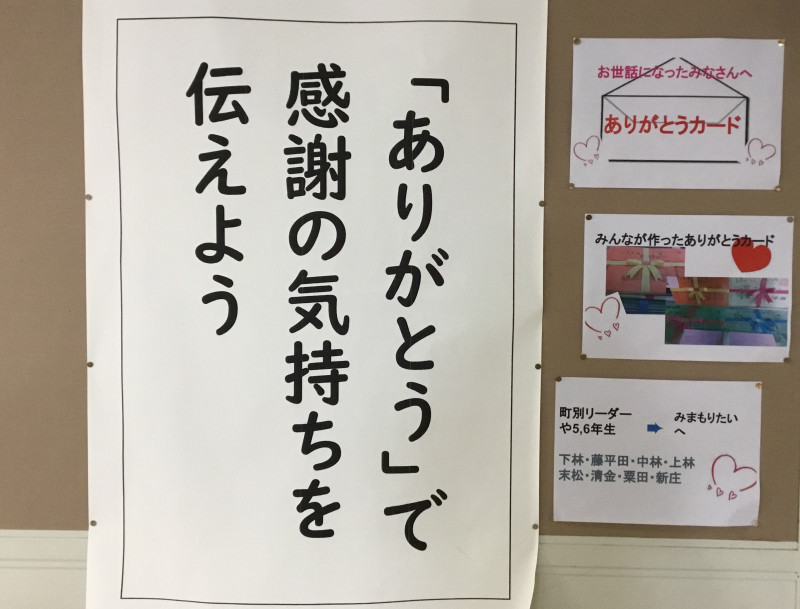 「ありがとう」で
感謝の気持ちを
伝えよう
お世話になったみなさんへ
ありがとうカード
みんなが作ったありがとうカード
町別リーダー
や5,6年生
みまもりたい
へ
下林・藤平田・中林・上林
末松・清金・粟田・新庄